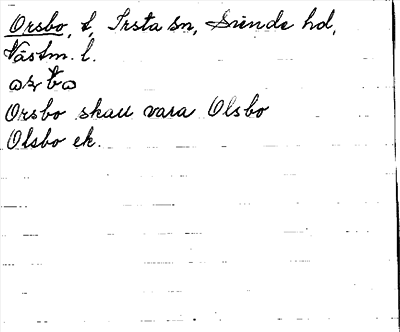 Orsbo, t, Irsta sn, Siende hd,
Västm. l.
Orsbo skall vara Olsbo
Olsbo ek.